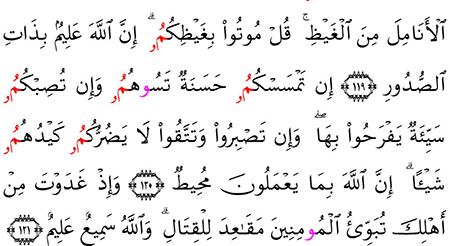 اَ۬لْأَنَامِلَ مِنَ اَ۬لْغَيْظِۖ قُلْ مُوتُواْ بِغَيْظِكُمُۥٓۖ إِنَّ اَ۬للَّهَ عَلِيمُۢ بِذَاتِ
اِ۬لصُّدُورِ ۝١١٩ إِن تَمْسَسْكُمُۥ حَسَنَةٌ تَسُوهُمُۥ وَإِن تُصِبْكُمُۥ
سَيِّئَةٌ يَفْرَحُواْ بِهَاۖ وَإِن تَصْبِرُواْ وَتَتَّقُواْ لَا يَضُرُّكُمُۥ كَيْدُهُمُۥ
شَيْـًٔاۗ إِنَّ اَ۬للَّهَ بِمَا يَعْمَلُونَ مُحِيطٌ ۝١٢٠ وَإِذْ غَدَوْتَ مِنْ
أَهْلِكَ تُبَوِّئُ اُ۬لْمُومِنِينَ مَقَٰعِدَ لِلْقِتَالِۗ وَاَ۬للَّهُ سَمِيعٌ عَلِيمٌ ۝١٢١